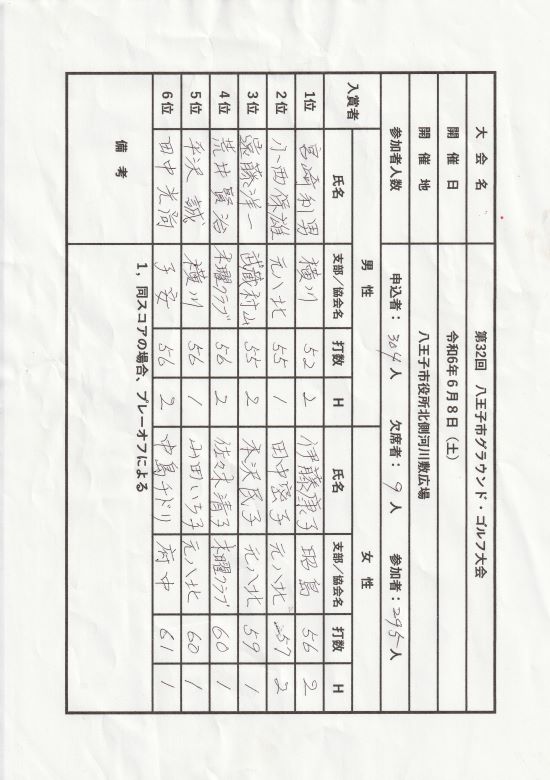 大会名 第32回 八王子市グラウンド・ゴルフ大会
開催日 令和6年6月8日（土）
開催地 八王子市役所北側河川敷広場
参加者人数 申込者：304人 欠席者：9人 参加者：295人
入賞者 男性 女性
氏名 支部／協会名 打数 H 氏名 支部／協会名 打数 H
1位 宮崎利男 横川 52 2 伊藤康子 昭島 56 2
2位 小西保雄 元八北 55 1 田中 子 元八北 57 2
3位 遠藤洋一 武蔵村山 55 2 本沢民子 元八北 59 1
4位 荒井賢治 木曜クラブ 56 2 佐々木清子 木曜クラブ 60 1
5位 平沢誠 横川 56 1 山田いち子 元八北 60 1
6位 田中光 子安 56 2 中島チドリ 府中 61 1
備考 1，同スコアの場合、プレーオフによる